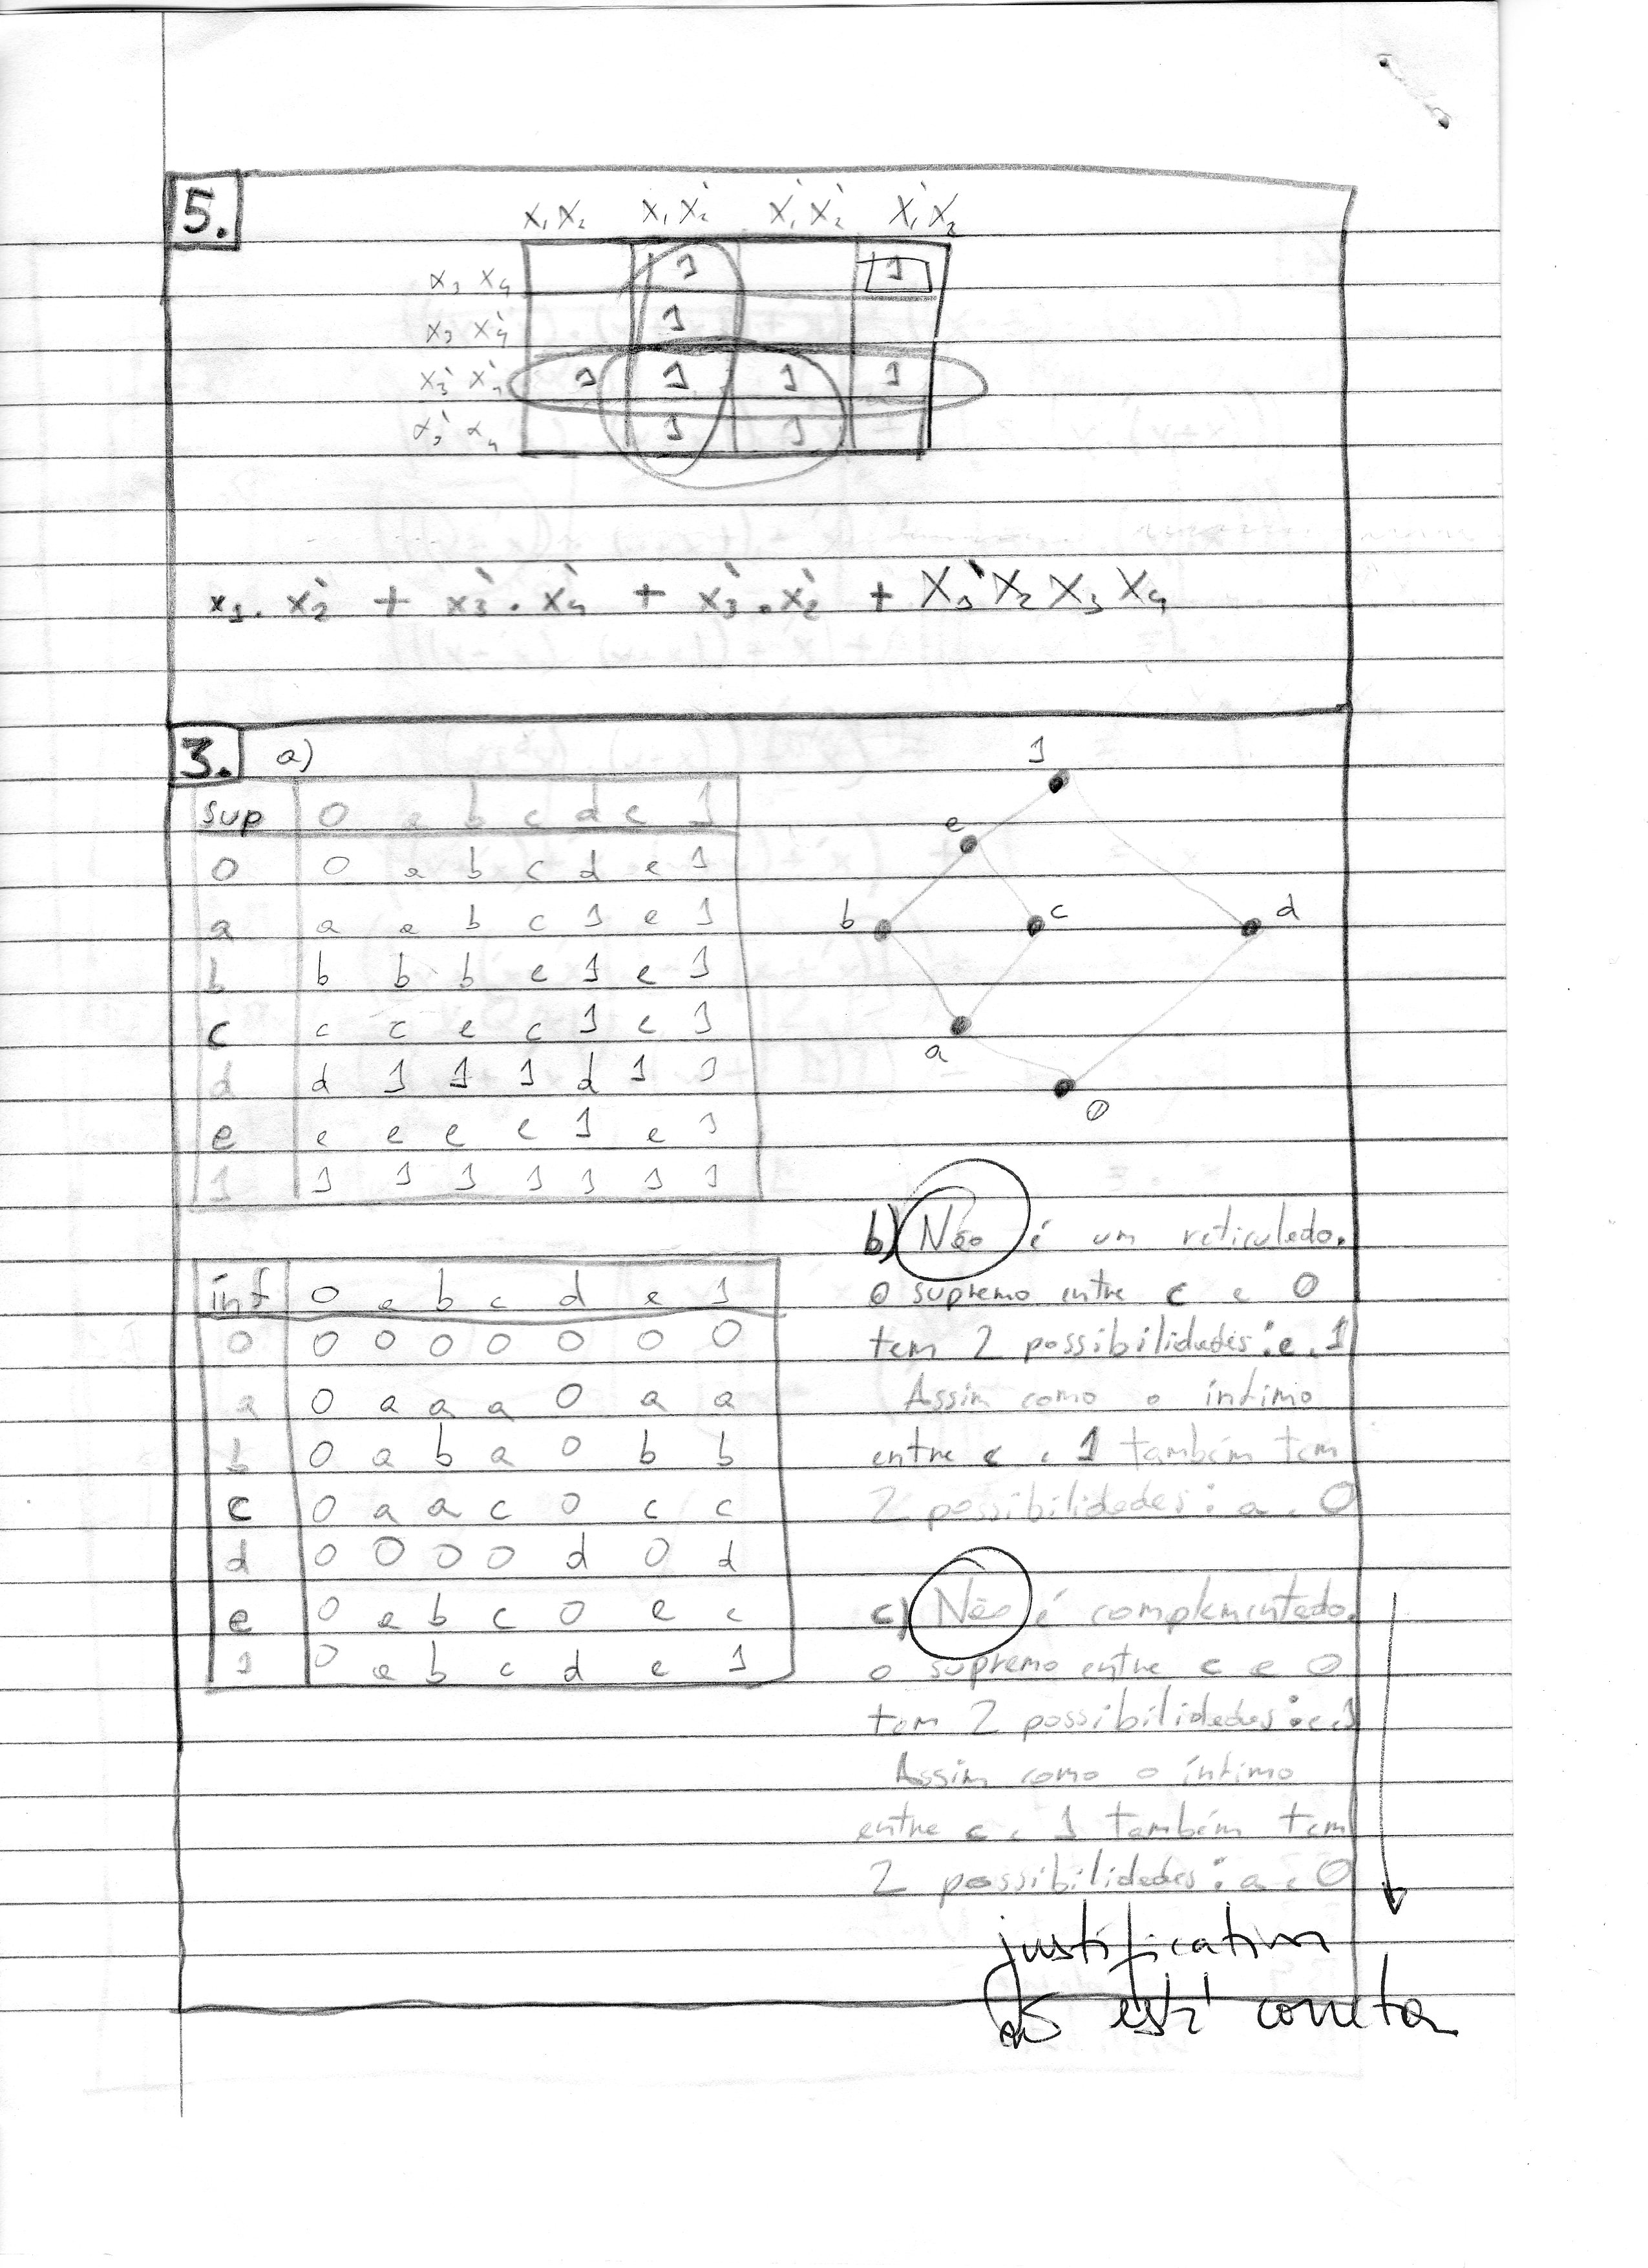 5.
x₁ x₂ x₁ x₂' x₁' x₂' x₁' x₂
x₃ x₄ 1 1
x₃ x₄' 1
x₃' x₄' 1 1 1 1
x₃' x₄ 1 1
x₁ . x₂' + x₃' . x₄' + x₃' . x₂' + x₁' x₂ x₃ x₄
3. a)
sup 0 a b c d e 1
0 0 a b c d e 1
a a a b c 1 e 1
b b b b e 1 e 1
c c c e c 1 e 1
d d 1 1 1 d 1 1
e e e e e 1 e 1
1 1 1 1 1 1 1 1
1
e
b c d
a
0
inf 0 a b c d e 1
0 0 0 0 0 0 0 0
a 0 a a a 0 a a
b 0 a b a 0 b b
c 0 a a c 0 c c
d 0 0 0 0 d 0 d
e 0 a b c 0 e e
1 0 a b c d e 1
b) Não é um reticulado.
o supremo entre c e 0
tem 2 possibilidades: e, 1
Assim como o ínfimo
entre c e 1 também tem
2 possibilidades: a e 0
c) Não é complementado.
o supremo entre c e 0
tem 2 possibilidades: e, 1
Assim como o ínfimo
entre c e 1 também tem
2 possibilidades: a e 0
justificativa
está correta